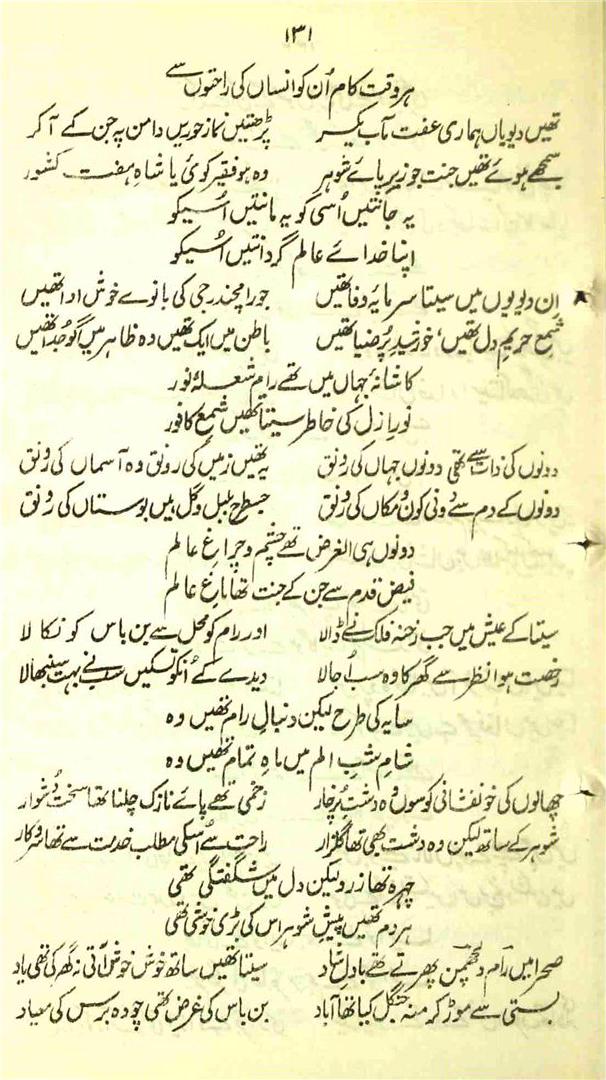 ۱۳۱
ہر وقت کام اُن کو انساں کی راحتوں سے
تھیں دیویاں ہماری عفت مآب یکسر پڑھتیں نماز حوریں دامن پہ جن کے آ کر
سمجھے ہوئے تھیں جنت جو زیرِ پائے شوہر وہ ہو فقیر کوئی یا شاہِ ہفت کشور
یہ جانتیں اُسی کو یہ مانتیں اُسیکو
اپنا خدائے عالم گردانتیں اُسیکو
اِن دیویوں میں سیتا سرمایۂ وفا تھیں جو رامچندر جی کی بانوے خوش ادا تھیں
شمع حریمِ دل تھیں، خورشیدِ پُر ضیا تھیں باطن میں ایک تھیں وہ ظاہر میں گو جُدا تھیں
کاشانۂ جہاں میں تھے رام شعلۂ نور
نورِ ازل کی خاطر سیتا تھیں شمع کافور
دونوں کی ذات سے تھی دونوں جہاں کی رونق یہ تھیں زمیں کی رونق وہ آسماں کی رونق
دونوں کے دم سے دُونی کون و مکاں کی رونق جسطرح بلبل و گل ہیں بوستاں کی رونق
دونوں ہی الغرض تھے چشم و چراغِ عالم
فیض قدم سے جن کے جنت تھا باغِ عالم
سیتا کے عیش میں جب رخنہ فلک نے ڈالا اور رام کو محل سے بن باس کو نکالا
رخصت ہوا نظر سے گھر کا وہ سب اُجالا دیدے کے اُنکو تسکیں سب نے بہت سنبھالا
سایہ کی طرح لیکن دنبالِ رام تھیں وہ
شامِ شبِ الم میں ماہِ تمام تھیں وہ
چھالوں کی خونفشانی کوسوں وہ دشتِ پُرخار زخمی تھے پائے نازک چلنا تھا سخت دُشوار
شوہر کے ساتھ لیکن وہ دشت بھی تھا گلزار راحت سے اُسکی مطلب خدمت سے تھا سروکار
چہرہ تھا زرد لیکن دل میں شگفتگی تھی
ہر دم تھیں پیشِ شوہر اس کی بڑی خوشی تھی
صحرا میں رام و لچھمن پھرتے تھے با دلِ شاد سیتا تھیں ساتھ خوش خوش آتی نہ گھر کی تھی یاد
بستی سے موڑ کر منہ جنگل کیا تھا آباد بن باس کی غرض تھی چودہ برس کی میعاد